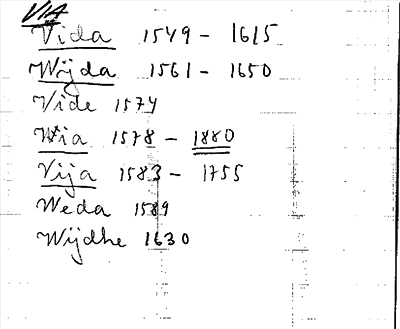 VIA
Vida 1549 - 1615
Wijda 1561 - 1650
Vide 1574
Wia 1578 - 1880
Vija 1583 - 1755
Weda 1589
Wijdhe 1630